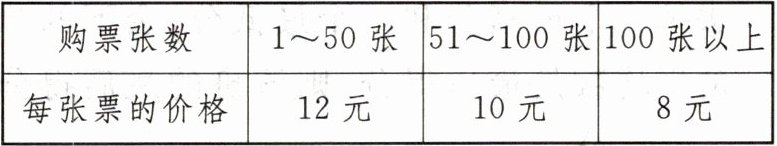 购票张数 1～50 张 51～100 张 100 张以上
每张票的价格 12 元 10 元 8 元